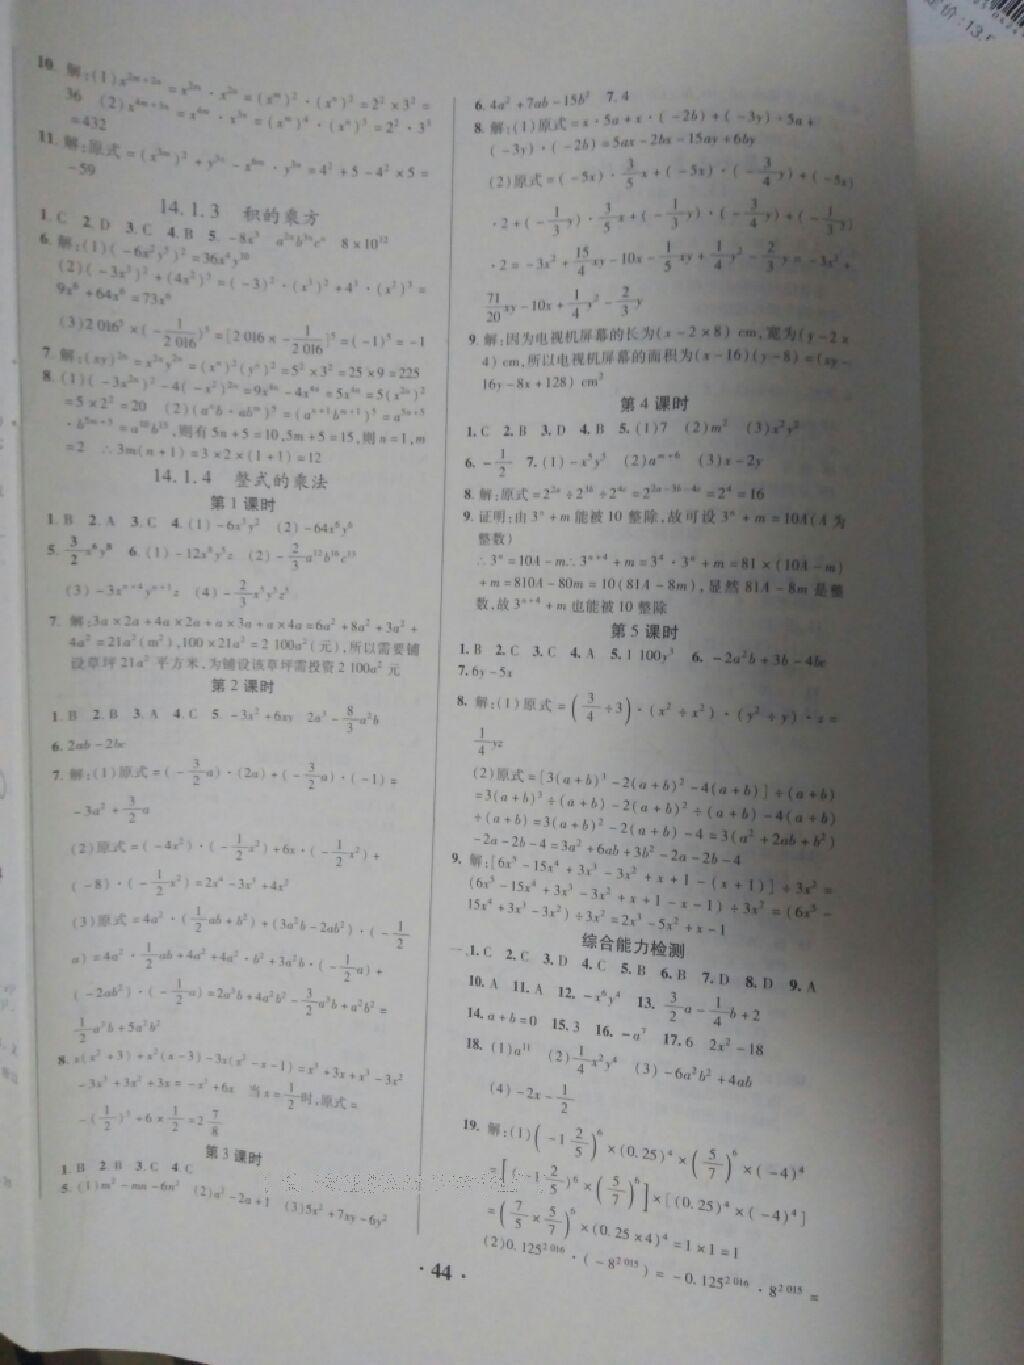 定价:13.5
10. 解:(1)x^{2m+2n}=x^{2m}·x^{2n}=(x^m)^2·(x^n)^2=2^2×3^2=
36 (2)x^{4m+3n}=x^{4m}·x^{3n}=(x^m)^4·(x^n)^3=2^2·3^3
=432
11. 解:原式=(x^{3m})^2+y^{3n}-x^{6m}·y^{3n}=4^2+5-4^2×5=
-59
14.1.3 积的乘方
1. C 2. D 3. C 4. B 5. -8x^3 a^{2n}b^{3n}c^n 8×10^{12}
6. 解:(1)(-6x^2y^5)^2=36x^4y^{10}
(2)(-3x^3)^2+(4x^2)^3=(-3)^2·(x^3)^2+4^3·(x^2)^3=
9x^6+64x^6=73x^6
(3)2 016^5×(-1/2 016)^5=[2 016×-1/2 016]^5=(-1)^5=-1
7. 解:(xy)^{2n}=x^{2n}y^{2n}=(x^n)^2(y^n)^2=5^2×3^2=25×9=225
8. (1)(-3x^{2n})^2-4(-x^2)^{2n}=9x^{4n}-4x^{4n}=5x^{4n}=5(x^{2n})^2
=5×2^2=20 (2)(a^nb·ab^m)^5=(a^{n+1}b^{m+1})^5=a^{5n+5}
·b^{5m+5}=a^{10}b^{15},则有5n+5=10,5m+5=15,则n=1,m
=2 ∴3m(n+1)=3×2×(1+1)=12
14.1.4 整式的乘法
第1课时
1. B 2. A 3. C 4. (1)-6x^3y^2 (2)-64x^6y^6
5. 3/2x^6y^8 6. (1)-12x^8y^5z (2)-2/3a^{12}b^{16}c^{15}
(3)-3x^{n+4}y^{n+3}z (4)-2/3x^5y^5z^5
7. 解:3a×2a+4a×2a+a×3a+a×4a=6a^2+8a^2+3a^2+
4a^2=21a^2(m^2),100×21a^2=2 100a^2(元),所以需要铺
设草坪21a^2平方米,为铺设该草坪需投资2 100a^2元
第2课时
1. B 2. B 3. A 4. C 5. -3x^2+6xy 2a^3-8/3a^2b
6. 2ab-2bc
7. 解:(1)原式=(-3/2a)·(2a)+(-3/2a)·(-1)=
-3a^2+3/2a
(2)原式=(-4x^2)·(-1/2x^2)+6x·(-1/2x^2)+
(-8)·(-1/2x^2)=2x^4-3x^3+4x^2
(3)原式=4a^2·(1/2ab+b^2)+(3a^2b-2ab^2)·(-1/2
a)=4a^2·1/2ab+4a^2+4a^2·b^2+3a^2b·(-1/2a)+
(-2ab^2)·(-1/2a)=2a^3b+4a^2b^2-3/2a^3b+a^2b^2=
1/2a^3b+5a^2b^2
8. x(x^2+3)+x^2(x-3)-3x(x^2-x-1)=x^3+3x+x^3-3x^2
-3x^3+3x^2+3x=-x^3+6x 当x=1/2时,原式=
-(1/2)^3+6×1/2=2 7/8
第3课时
1. B 2. B 3. C 4. C
5. (1)m^2-mn-6n^2 (2)a^2-2a+1 (3)5x^2+7xy-6y^2
6. 4a^2+7ab-15b^2 7. 4
8. 解:(1)原式=x·5a+x·(-2b)+(-3y)·5a+
(-3y)·(-2b)=5ax-2bx-15ay+6by
(2)原式=(-5x)·3/5x+(-5x)·(-3/4y)+(-5x)
·2+(-1/3y)·3/5x+(-1/3y)·(-3/4y)+(-1/3y)
·2=-3x^2+15/4xy-10x-1/5xy+1/4y^2-2/3y=-3x^2+
71/20xy-10x+1/4y^2-2/3y
9. 解:因为电视机屏幕的长为(x-2×8) cm,宽为(y-2×
4) cm,所以电视机屏幕的面积为(x-16)(y-8)=(xy-
16y-8x+128) cm^2
第4课时
1. C 2. B 3. D 4. B 5. (1)7 (2)m^2 (3)x^2y^2
6. -1/2 7. (1)-x^5y^5 (2)a^{m+6} (3)x-2y
8. 解:原式=2^{2a}÷2^{3b}÷2^{4c}=2^{2a-3b-4c}=2^4=16
9. 证明:由3^n+m能被10整除,故可设3^n+m=10A(A为
整数)
∴3^n=10A-m∴3^{n+4}+m=3^4·3^n+m=81×(10A-m)
+m=810A-80m=10(81A-8m),显然81A-8m是整
数,故3^{n+4}+m也能被10整除
第5课时
1. B 2. C 3. C 4. A 5. 1 100y^3 6. -2a^2b+3b-4bc
7. 6y-5x
8. 解:(1)原式=(3/4÷3)·(x^2÷x^2)·(y^2÷y)·z=
1/4yz
(2)原式=[3(a+b)^3-2(a+b)^2-4(a+b)]÷(a+b)
=3(a+b)^3÷(a+b)-2(a+b)^2÷(a+b)-4(a+b)
÷(a+b)=3(a+b)^2-2(a+b)-4=3(a^2+2ab+b^2)
-2a-2b-4=3a^2+6ab+3b^2-2a-2b-4
9. 解:[6x^5-15x^4+3x^3-3x^2+x+1-(x+1)]÷3x^2=
(6x^5-15x^4+3x^3-3x^2+x+1-x-1)÷3x^2=(6x^5-
15x^4+3x^3-3x^2)÷3x^2=2x^3-5x^2+x-1
综合能力检测
一、1. C 2. C 3. D 4. C 5. B 6. B 7. D 8. D 9. A
10. A 11. A 12. -x^6y^4 13. 3/2a-1/4b+2
14. a+b=0 15. 3 16. -a^7 17. 6 2x^2-18
18. (1)a^{11} (2)1/4x^2y^4 (3)-6a^3b^2+4ab
(4)-2x-1/2
19. 解:(1)(-1 2/5)^6×(0.25)^4×(5/7)^6×(-4)^4
=[(-1 2/5)^6×(5/7)^6]×[(0.25)^4×(-4)^4]
=(7/5×5/7)^6×(0.25×4)^4=1×1=1
(2)0.125^{2 016}·(-8^{2 015})=-0.125^{2 016}·8^{2 015}=
·44·